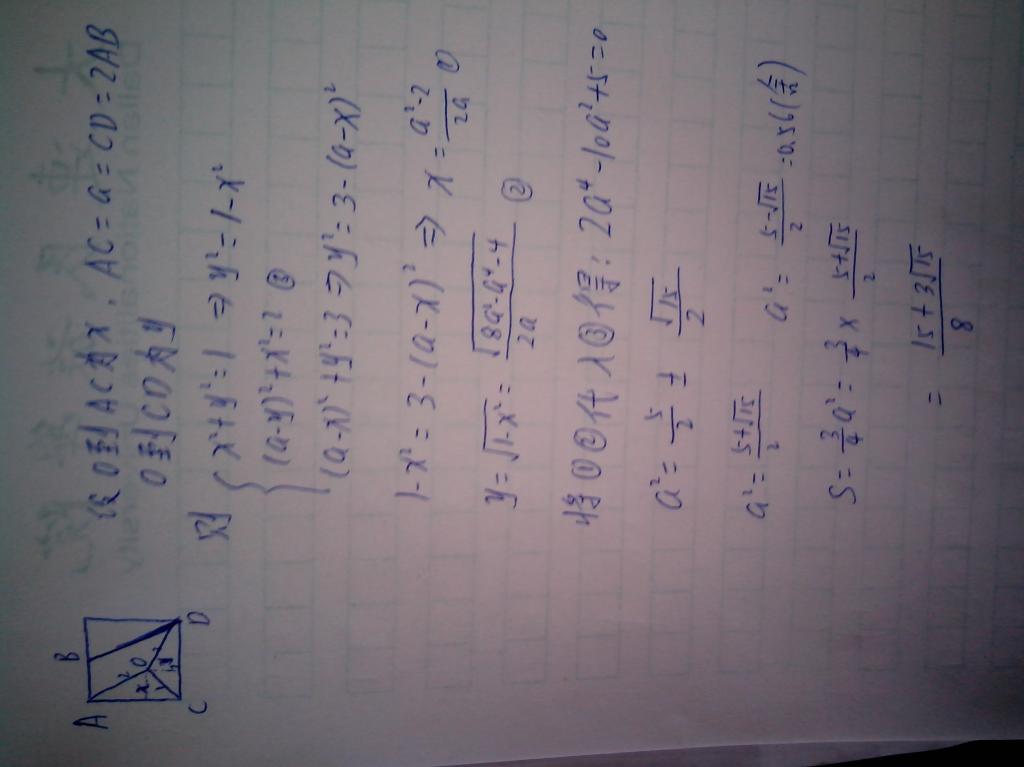 A B
x 2 O
1 y
C D
设O到AC为x, AC=a=CD=2AB
O到CD为y
则 { x²+y²=1 ⇒ y²=1-x²
(a-y)²+x²=2 ③
(a-x)²+y²=3 ⇒ y²=3-(a-x)²
1-x²=3-(a-x)² ⇒ x=\frac{a²-2}{2a} ①
y=√(1-x²)=\frac{√(8a²-a⁴-4)}{2a} ②
将①②代入③得: 2a⁴-10a²+5=0
a²=\frac{5}{2} ± \frac{√15}{2}
a²=\frac{5+√15}{2} a²=\frac{5-√15}{2}=0.56(舍)
S=\frac{3}{4}a²=\frac{3}{4}×\frac{5+√15}{2}
=\frac{15+3√15}{8}